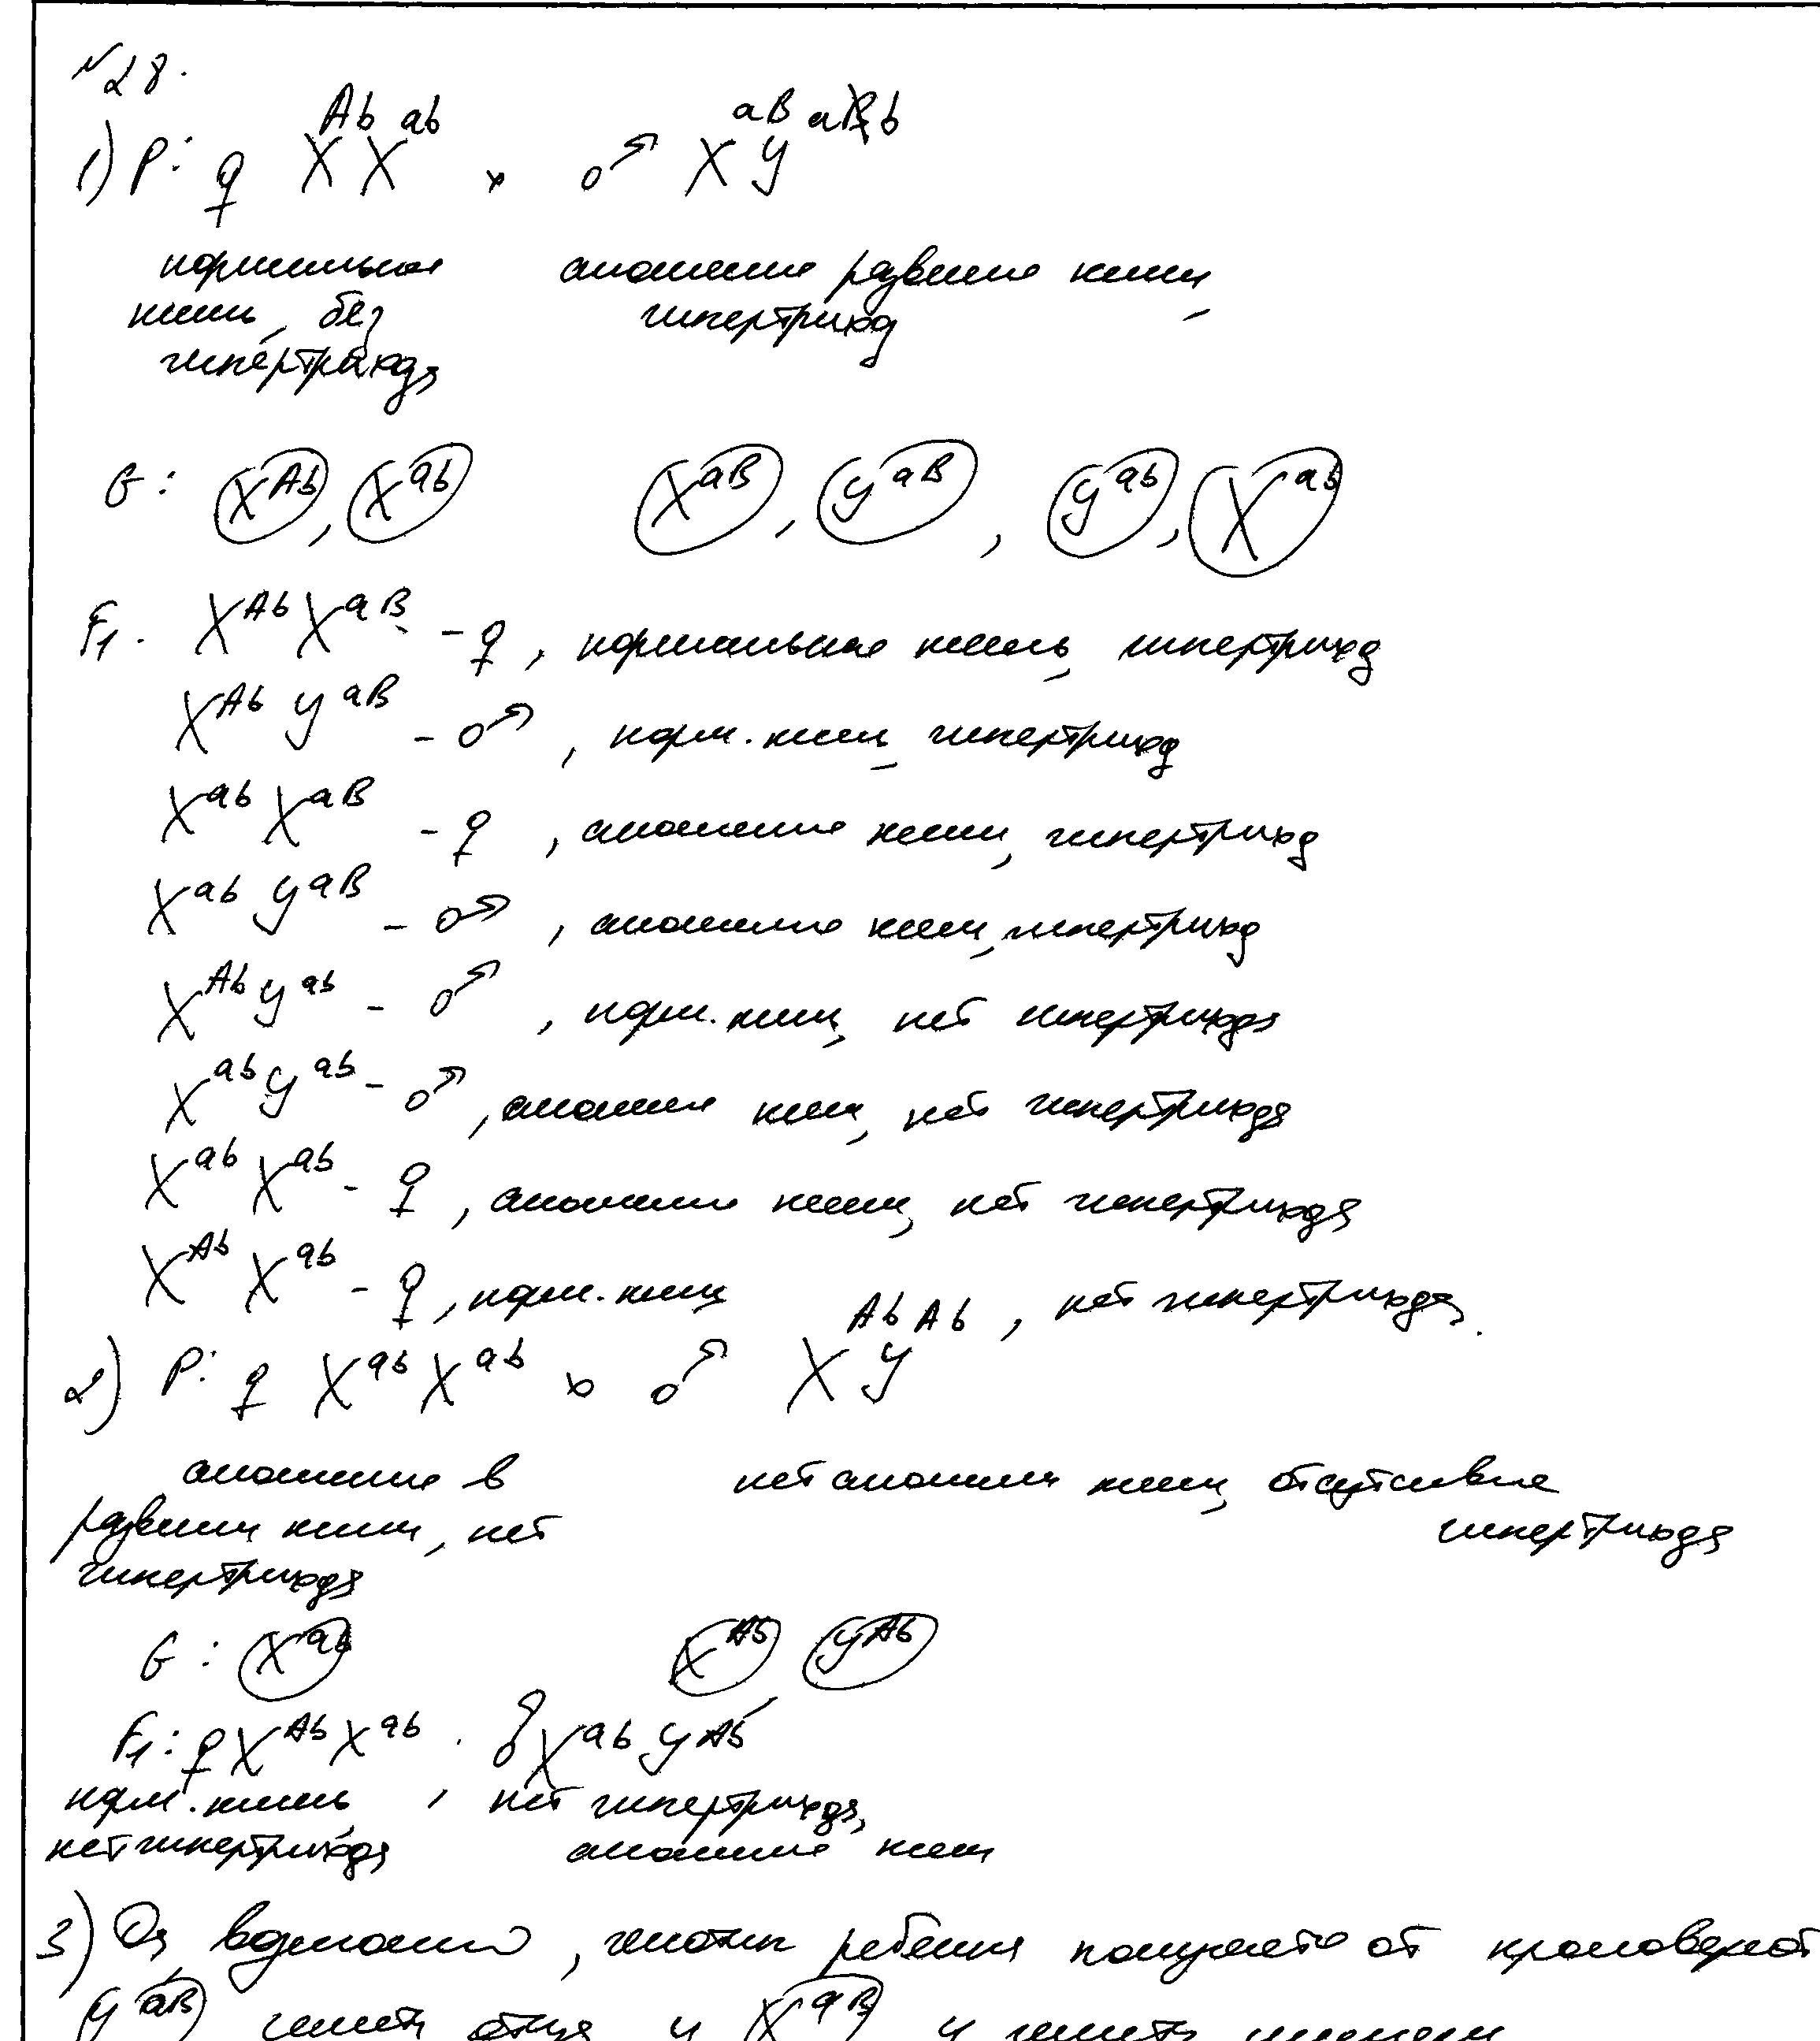 №28.
1) P: ♀ X^Ab X^ab × ♂ X^aB Y^ab
нормальная аномалия развития кожи,
кожа, без гипертрихоз
гипертрихоза
G: X^Ab, X^ab X^aB, Y^aB, Y^ab, X^ab
F1. X^Ab X^aB - ♀, нормальная кожа, гипертрихоз
X^Ab Y^aB - ♂, норм. кожи, гипертрихоз
X^ab X^aB - ♀, аномалия кожи, гипертрихоз
X^ab Y^aB - ♂, аномалия кожи, гипертрихоз
X^Ab Y^ab - ♂, норм. кожи, нет гипертрихоза
X^ab Y^ab - ♂, аномалия кожи, нет гипертрихоза
X^ab X^ab - ♀, аномалия кожи, нет гипертрихоза
X^Ab X^ab - ♀, норм. кожи, нет гипертрихоза.
2) P: ♀ X^ab X^ab × ♂ X^Ab Y^Ab
аномалия в нет аномалии кожи, отсутсивие
развитии кожи, нет гипертрихоза
гипертрихоза
G: X^ab X^Ab, Y^Ab
F1: ♀ X^Ab X^ab . ♂ X^ab Y^Ab
норм. кожа, , нет гипертрихоза,
нет гипертрихоза аномалия кожи
3) Да, возможно, генотип ребенка получается от кроссоверной
Y^aB гаметы отца и X^aB